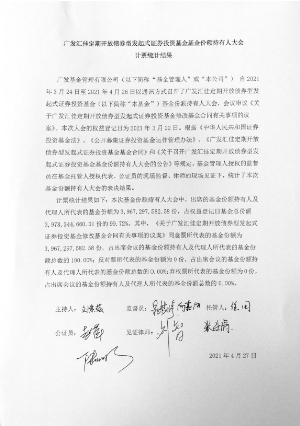 广发汇佳定期开放债券型发起式证券投资基金基金份额持有人大会
计票统计结果
广发基金管理有限公司（以下简称“基金管理人”或“本公司”）自 2021
年 3 月 24 日至 2021 年 4 月 26 日以通讯方式召开了广发汇佳定期开放债券型发
起式证券投资基金（以下简称“本基金”）基金份额持有人大会，会议审议《关
于广发汇佳定期开放债券型发起式证券投资基金修改基金合同有关事项的议
案》。本次大会的权益登记日为 2021 年 3 月 22 日。根据《中华人民共和国证券
投资基金法》、《公开募集证券投资基金运作管理办法》、《广发汇佳定期开
放债券型发起式证券投资基金基金合同》和《关于召开广发汇佳定期开放债券型发起
式证券投资基金基金份额持有人大会的公告》等规定，基金管理人授权的监督
员在基金托管人授权代表、公证员的见证、律师的现场见证下，统计了本次
基金份额持有人大会的表决结果。
计票统计结果如下，本次基金份额持有人大会中，出席的基金份额持有人及
代理人所代表的基金份额为 3,967,297,582.58 份，占权益登记日基金总份额
3,978,346,660.31 份的 99.72%。其中，《关于广发汇佳定期开放债券型发起式
证券投资基金修改基金合同有关事项的议案》同意票所代表的基金份额为
3,967,297,582.58 份，占出席会议的基金份额持有人及代理人所代表的基金份
额总数的 100.00%；反对票所代表的基金份额为 0 份，占出席会议的基金份额持
有人及代理人所代表的基金份额总数的 0.00%；弃权票所代表的基金份额为 0 份，
占出席会议的基金份额持有人及代理人所代表的基金份额总数的 0.00%。
主持人： 监督员： 托管人：
公证员： 见证律师：
2021 年 4 月 27 日